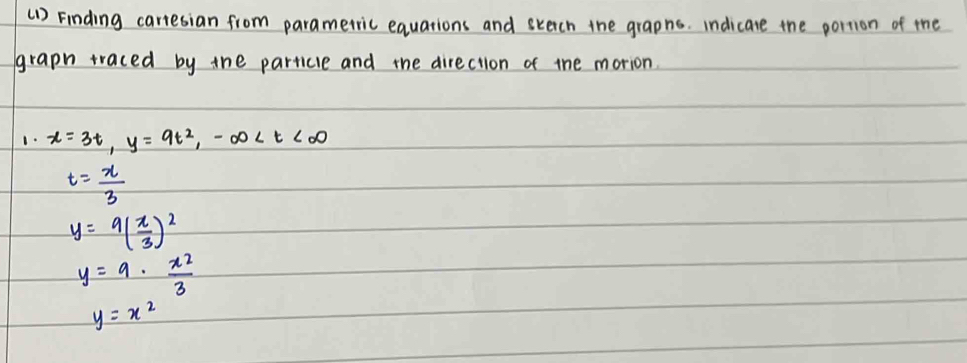 (1) Finding cartesian from parametric equations and sketch the graphs. indicate the portion of the
graph traced by the particle and the direction of the motion.
1. x = 3t, y = 9t², -∞ < t < ∞
t = x/3
y = 9(x/3)²
y = 9 · x²/3
y = x²